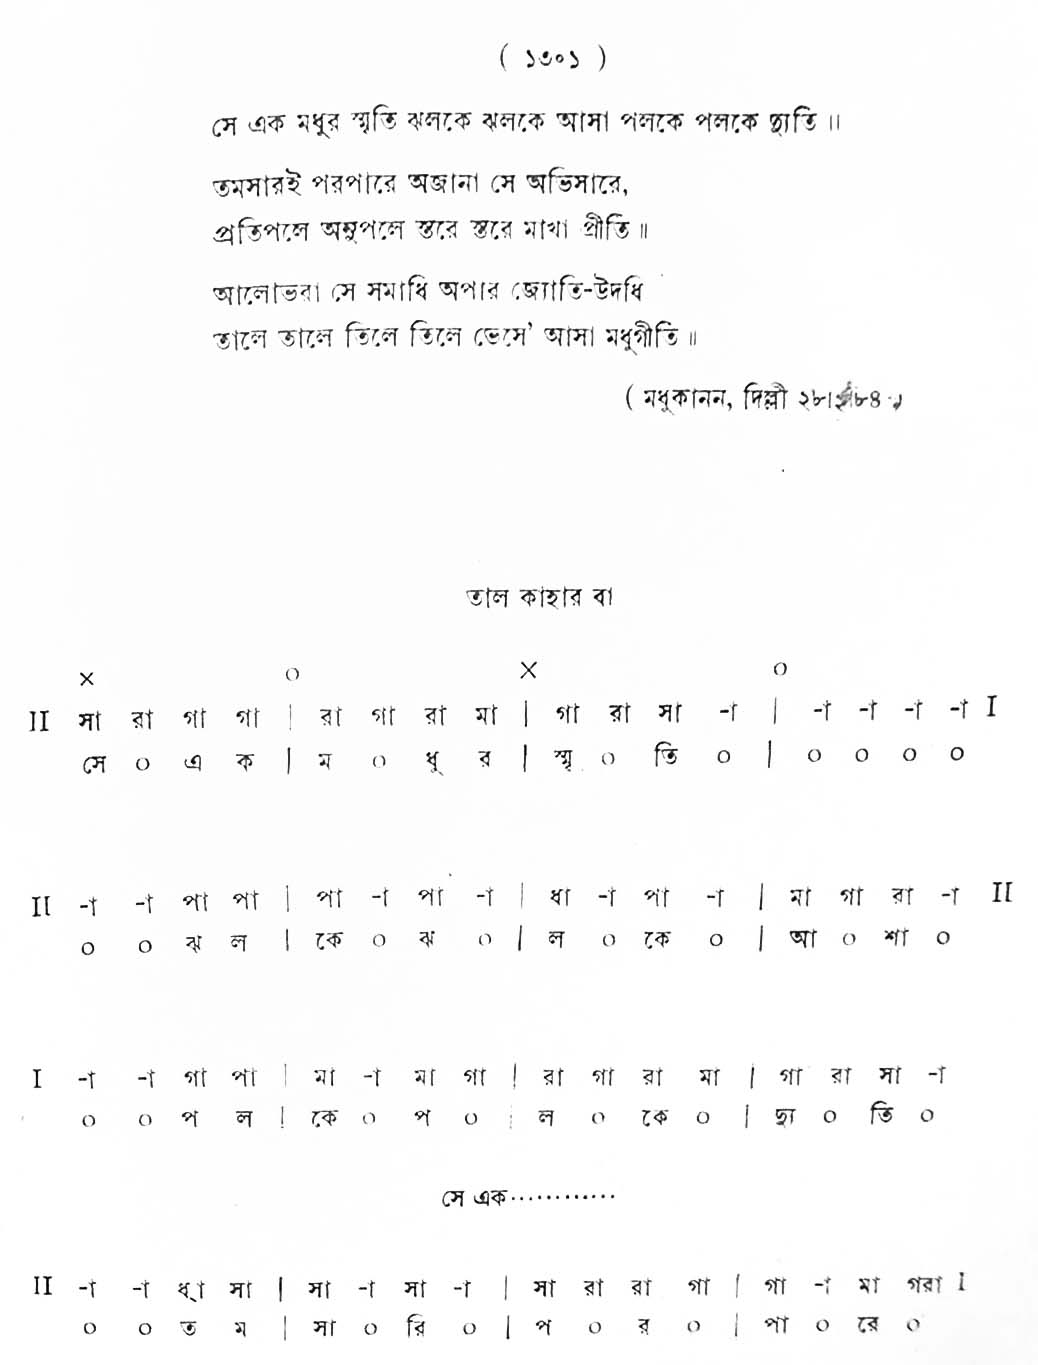 ( ১৩০১ )
সে এক মধুর স্মৃতি ঝলকে ঝলকে আসা পলকে পলকে দ্যুতি ॥
তমসারই পরপারে অজানা সে অভিসারে,
প্রতিপলে অনুপলে স্তরে স্তরে মাখা প্রীতি ॥
আলোভরা সে সমাধি অপার জ্যোতি-উদধি
তালে তালে তিলে তিলে ভেসে' আসা মধুগীতি ॥
( মধুকানন, দিল্লী
তাল কাহার বা
× ০ × ০
II সা রা গা গা | রা গা রা মা | গা রা সা -া | -া -া -া -া I
সে ০ এ ক | ম ০ ধু র | স্মৃ ০ তি ০ | ০ ০ ০ ০
II -া -া পা পা | পা -া পা -া | ধা -া পা -া | মা গা রা -া II
০ ০ ঝ ল | কে ০ ঝ ০ | ল ০ কে ০ | আ ০ শা ০
I -া -া গা পা | মা -া মা গা | রা গা রা মা | গা রা সা -া
০ ০ প ল | কে ০ প ০ | ল ০ কে ০ | দ্যু ০ তি ০
সে এক············
II -া -া ধ্া সা | সা -া সা -া | সা রা রা গা | গা -া মা গরা I
০ ০ ত ম | সা ০ রি ০ | প ০ র ০ | পা ০ রে ০